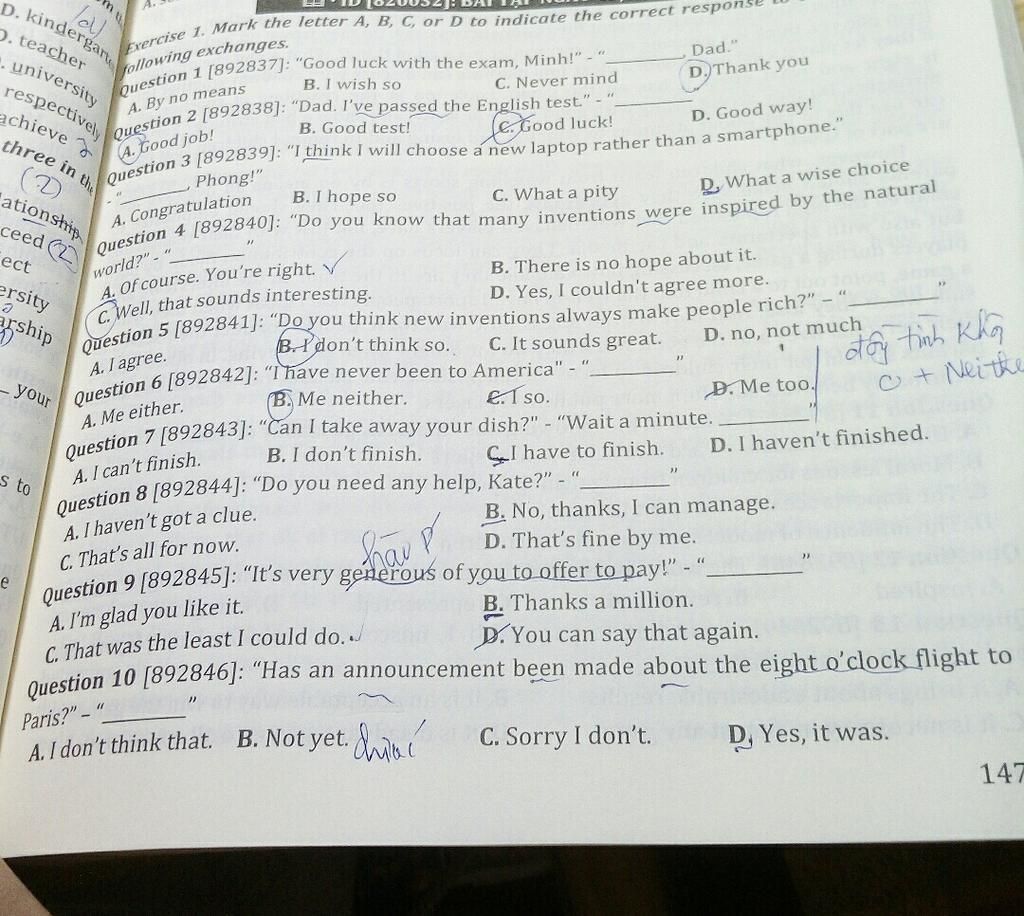 D. kindergarte
D. teacher
. university
respectively
achieve 2
three in the
(2)
lationship
ceed (2)
ject
ersity
arship
your
s to
e
A.
ID [820032]: BÀI TẬP
Exercise 1. Mark the letter A, B, C, or D to indicate the correct response to
following exchanges.
Question 1 [892837]: “Good luck with the exam, Minh!” - “________, Dad.”
A. By no means B. I wish so C. Never mind D. Thank you
Question 2 [892838]: “Dad. I’ve passed the English test.” - “________
A. Good job! B. Good test! C. Good luck! D. Good way!
Question 3 [892839]: “I think I will choose a new laptop rather than a smartphone.”
- “________, Phong!”
A. Congratulation B. I hope so C. What a pity D. What a wise choice
Question 4 [892840]: “Do you know that many inventions were inspired by the natural
world?” - “________”
A. Of course. You’re right. B. There is no hope about it.
C. Well, that sounds interesting. D. Yes, I couldn't agree more.
Question 5 [892841]: “Do you think new inventions always make people rich?” – “________”
A. I agree. B. I don’t think so. C. It sounds great. D. no, not much
Question 6 [892842]: “I have never been to America” - “________”
A. Me either. B. Me neither. C. I so. D. Me too.
C + Neithe
Question 7 [892843]: “Can I take away your dish?" - “Wait a minute. ________”
A. I can’t finish. B. I don’t finish. C. I have to finish. D. I haven’t finished.
Question 8 [892844]: “Do you need any help, Kate?” - “________”
A. I haven’t got a clue. B. No, thanks, I can manage.
C. That’s all for now. D. That’s fine by me.
Question 9 [892845]: “It’s very generous of you to offer to pay!” - “________”
A. I’m glad you like it. B. Thanks a million.
C. That was the least I could do. D. You can say that again.
Question 10 [892846]: “Has an announcement been made about the eight o’clock flight to
Paris?” – “________”
A. I don’t think that. B. Not yet. C. Sorry I don’t. D. Yes, it was.
147